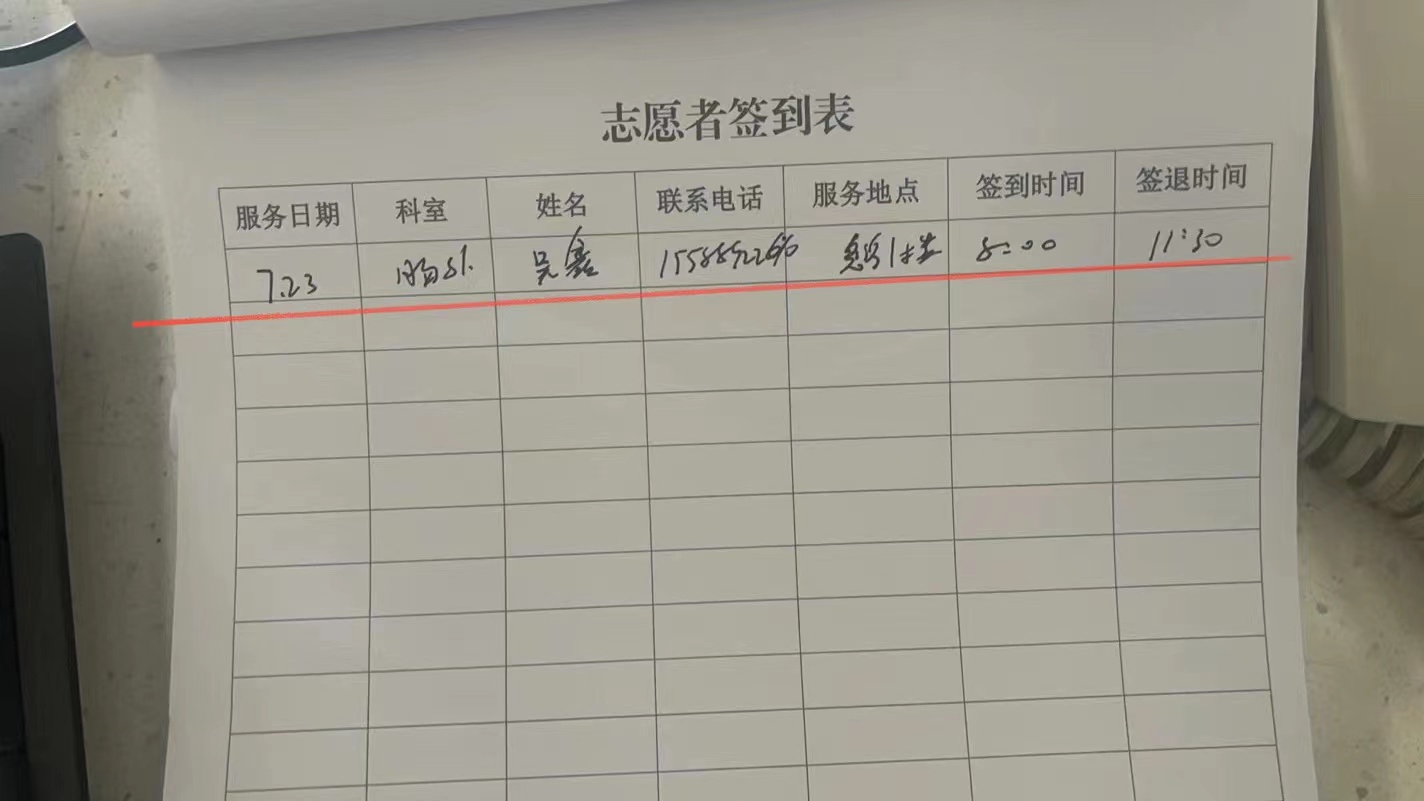 志愿者签到表
服务日期 科室 姓名 联系电话 服务地点 签到时间 签退时间
7.23 胸外 吴 1楼 8:00 11:30